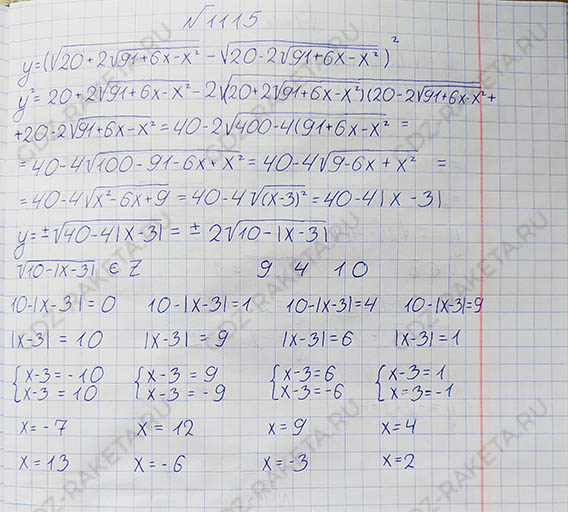 №1115
y=(√20+2√91+6x-x² -√20-2√91+6x-x² )²
y²=20+2√91+6x-x²-2√(20+2√91+6x-x²)(20-2√91+6x-x²+
+20-2√91+6x-x²=40-2√400-4(91+6x-x² =
=40-4√100-91-6x+x²=40-4√9-6x+x² =
=40-4√x²-6x+9=40-4√(x-3)²=40-4|x-3|
y=±√40-4|x-3|=±2√10-|x-3|
√10-|x-3| ∈ Z 9 4 10
10-|x-3|=0 10-|x-3|=1 10-|x-3|=4 10-|x-3|=9
|x-3|=10 |x-3|=9 |x-3|=6 |x-3|=1
{x-3=-10 {x-3=9 {x-3=6 {x-3=1
{x-3=10 {x-3=-9 {x-3=-6 {x=3=-1
x=-7 x=12 x=9 x=4
x=13 x=-6 x=-3 x=2
GDZ-RAKETA.RU